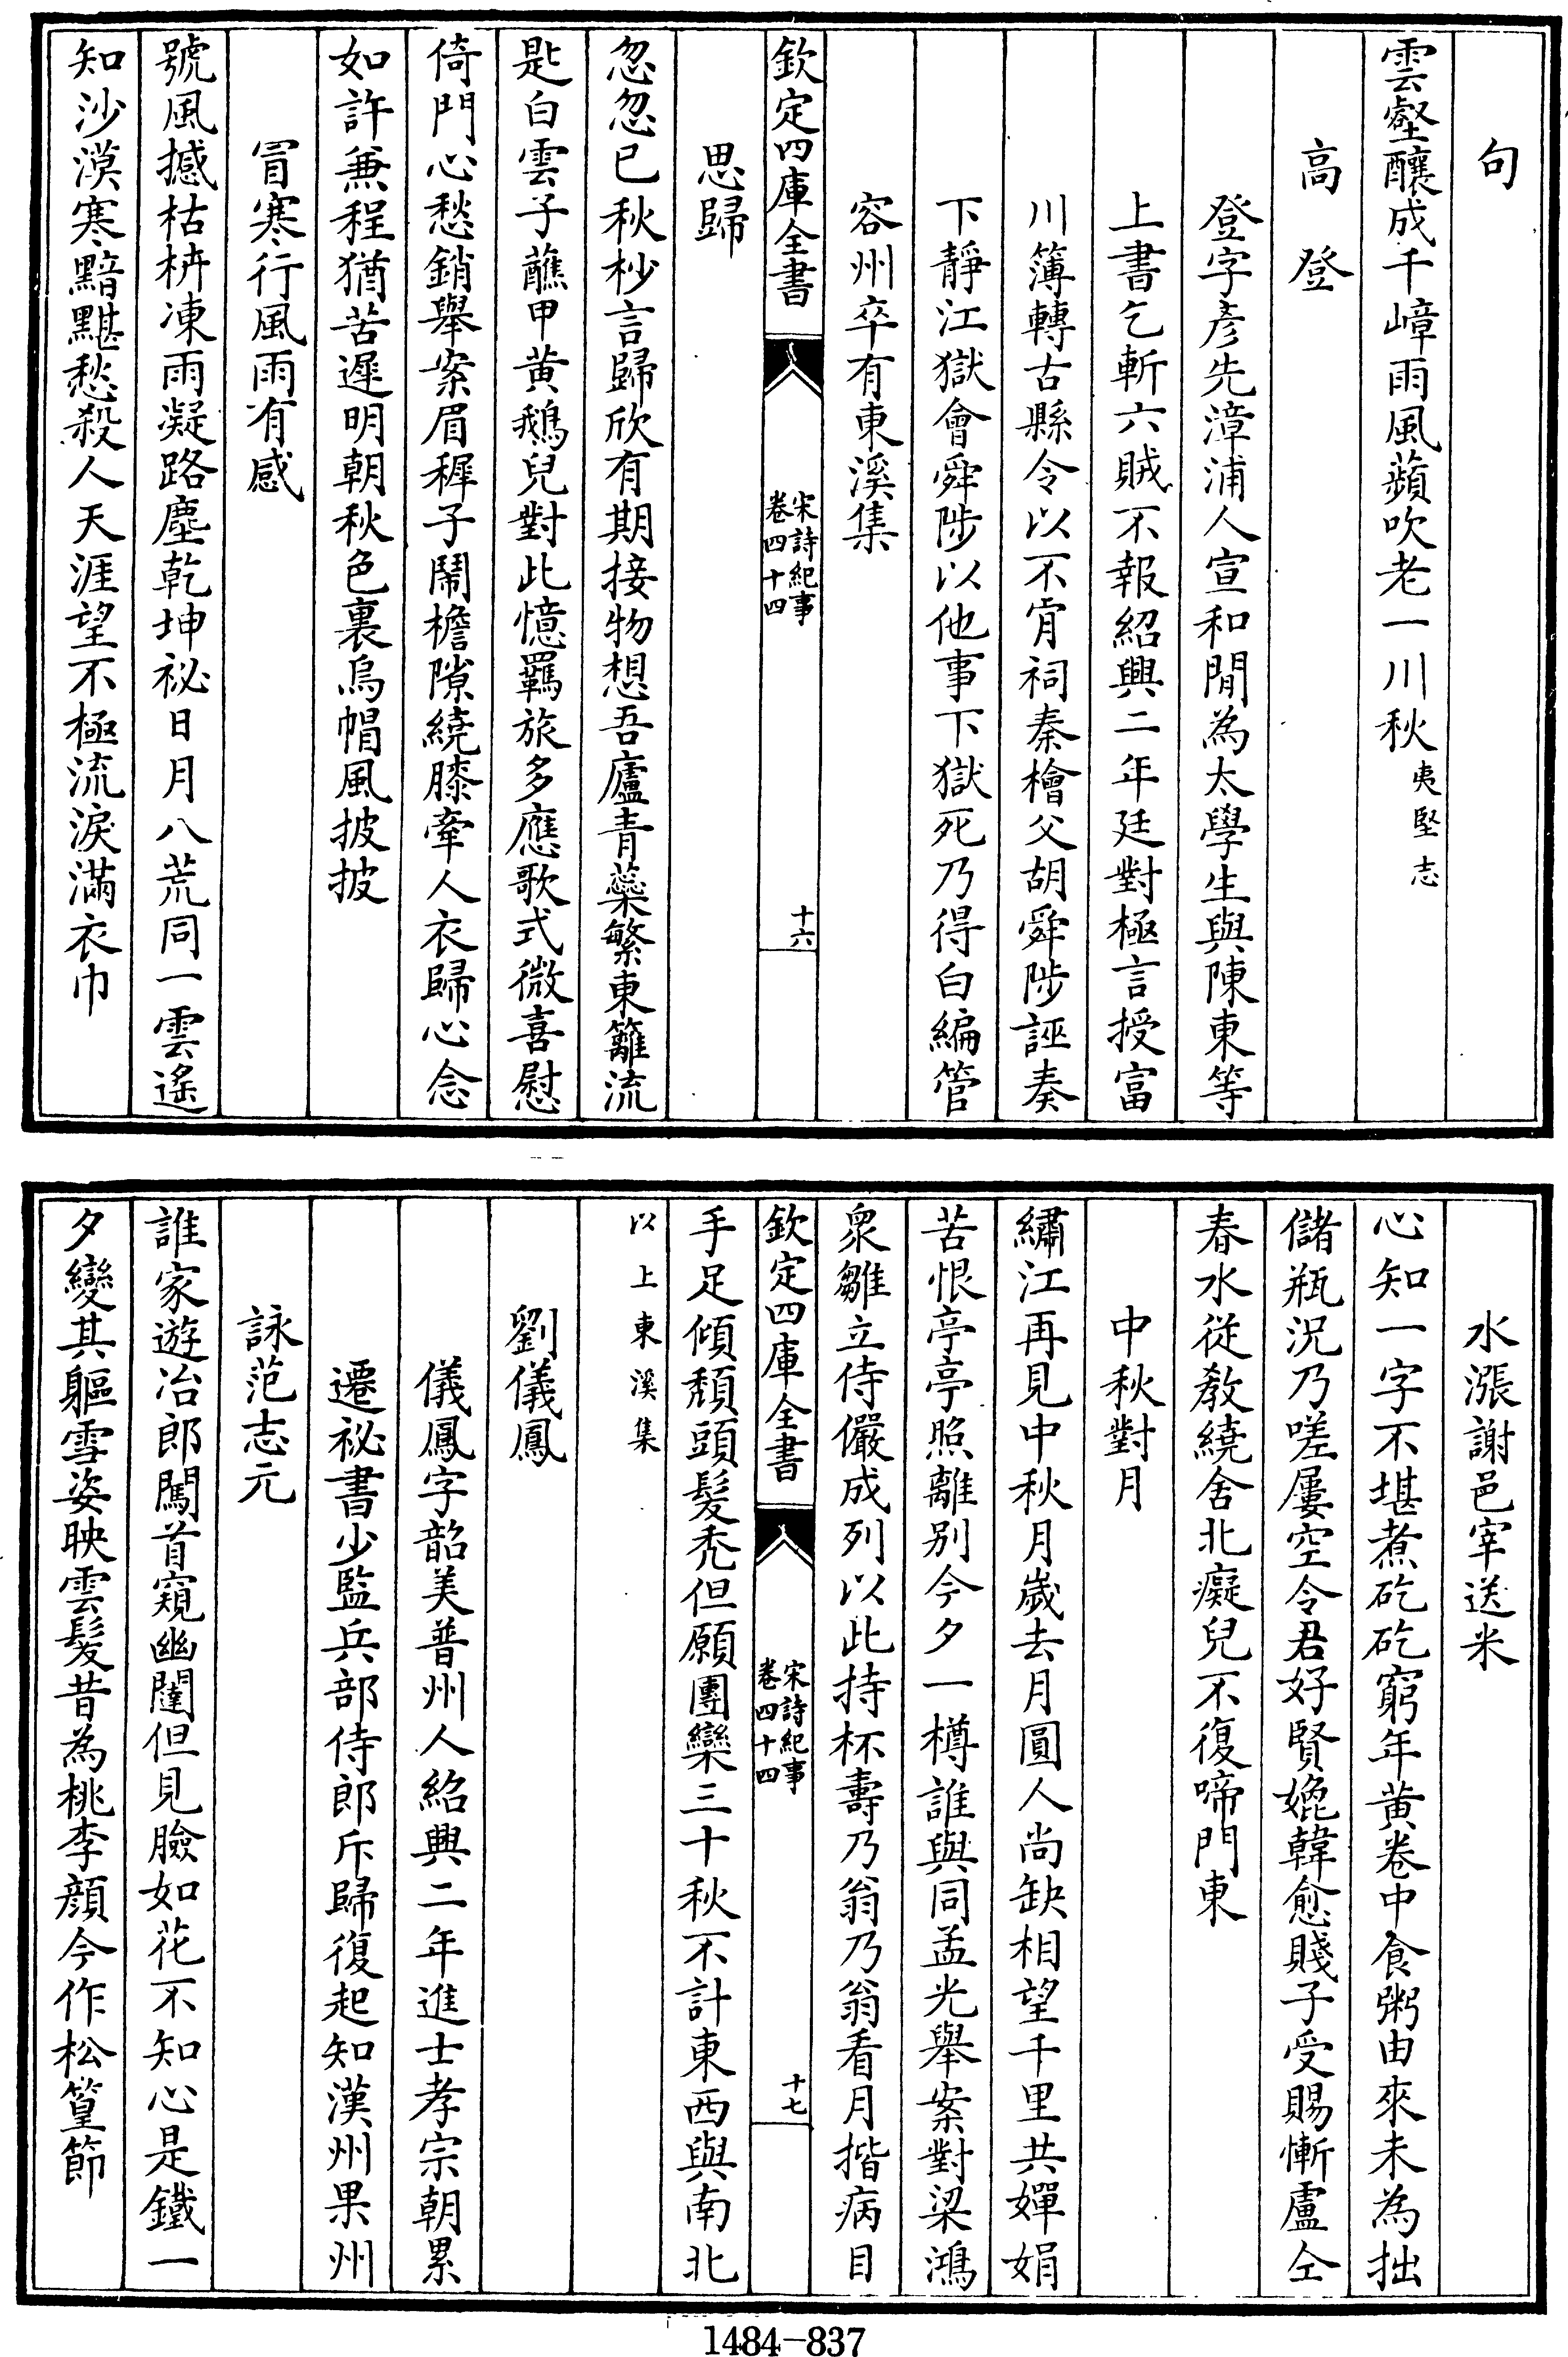 句
雲壑釀成千嶂雨風蘋吹老一川秋夷堅志
高登
登字彥先漳浦人宣和閒為太學生與陳東等
上書乞斬六賊不報紹興二年廷對極言授富
川簿轉古縣令以不肯祠秦檜父胡舜陟誣奏
下靜江獄會舜陟以他事下獄死乃得白編管
容州卒有東溪集
欽定四庫全書
宋詩紀事
卷四十四
十六
思歸
忽忽已秋杪言歸欣有期接物想吾廬青蘂繁東籬流
匙白雲子蘸甲黄鵝兒對此憶羈旅多應歌式微喜慰
倚門心愁銷舉案眉穉子鬧檐隙繞膝牽人衣歸心念
如許兼程猶苦遲明朝秋色裏烏帽風披披
冒寒行風雨有感
號風撼枯枿凍雨凝路塵乾坤祕日月八荒同一雲遙
知沙漠寒黯黮愁殺人天涯望不極流淚滿衣巾
水漲謝邑宰送米
心知一字不堪煮矻矻窮年黄卷中食粥由來未為拙
儲瓶況乃嗟屢空令君好賢媲韓愈賤子受賜慚盧仝
春水從教繞舍北癡兒不復啼門東
中秋對月
繡江再見中秋月歲去月圓人尚缺相望千里共嬋娟
苦恨亭亭照離别今夕一樽誰與同孟光舉案對梁鴻
衆雛立侍儼成列以此持杯壽乃翁乃翁看月揩病目
欽定四庫全書
宋詩紀事
卷四十四
十七
手足傾頽頭髮禿但願團欒三十秋不計東西與南北
以上東溪集
劉儀鳳
儀鳳字韶美普州人紹興二年進士孝宗朝累
遷祕書少監兵部侍郎斥歸復起知漢州果州
詠范志元
誰家遊冶郎闖首窺幽闥但見臉如花不知心是鐵一
夕變其軀雪姿映雲髮昔為桃李顔今作松篁節
1484-837